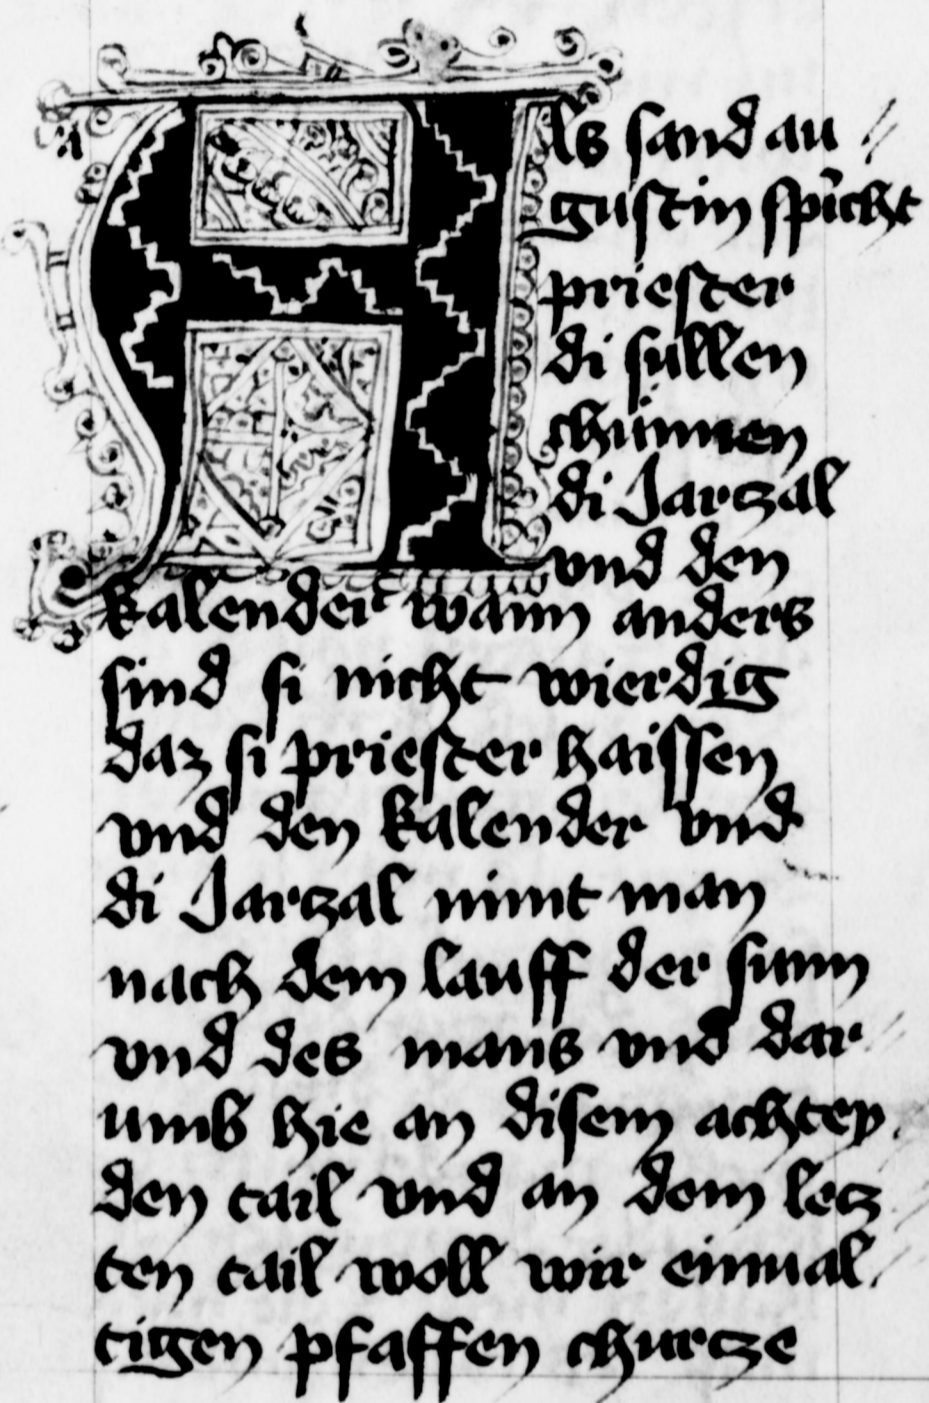 Als sand au⸗
gustin spricht
priester
di sullen
chunnen
di Jarczal
vnd den
kalender wann anders
sind si nicht wierdig
daz si priester haissen
vnd den kalender vnd
di Jarczal nimt man
nach dem lauff der sunn
vnd des mans vnd dar⸗
umb hie an disem achten⸗
den tail vnd an dem lecz⸗
ten tail woll wir einual⸗
tigen pfaffen churcze